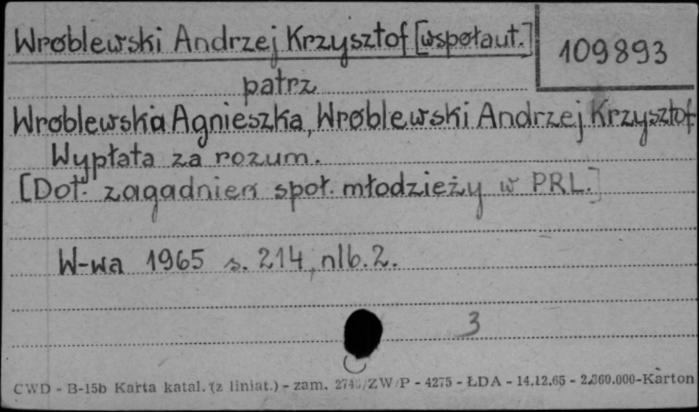 Wróblewski Andrzej Krzysztof [współaut.]
109893
patrz
Wróblewska Agnieszka, Wróblewski Andrzej Krzysztof
Wypłata za rozum.
[Dot. zagadnień społ. młodzieży w PRL.]
W-wa 1965 s. 214, nlb. 2.
3
CWD - B-15b Karta katal. (z liniat.) - zam. /ZW/P - 4275 - ŁDA - 14.12.65 - 2.360.000-Karton